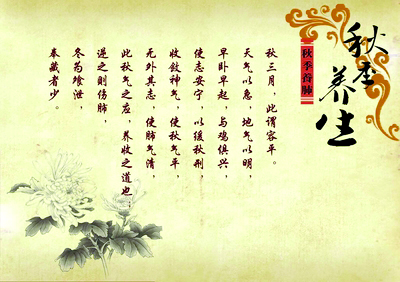 秋季养生
秋季首肺
秋三月，此谓容平。
天气以急，地气以明，
早卧早起，与鸡俱兴，
使志安宁，以缓秋刑，
收敛神气，使秋气平，
无外其志，使肺气清，
此秋气之应，养收之道也；
逆之则伤肺，
冬为飧泄，
奉藏者少。